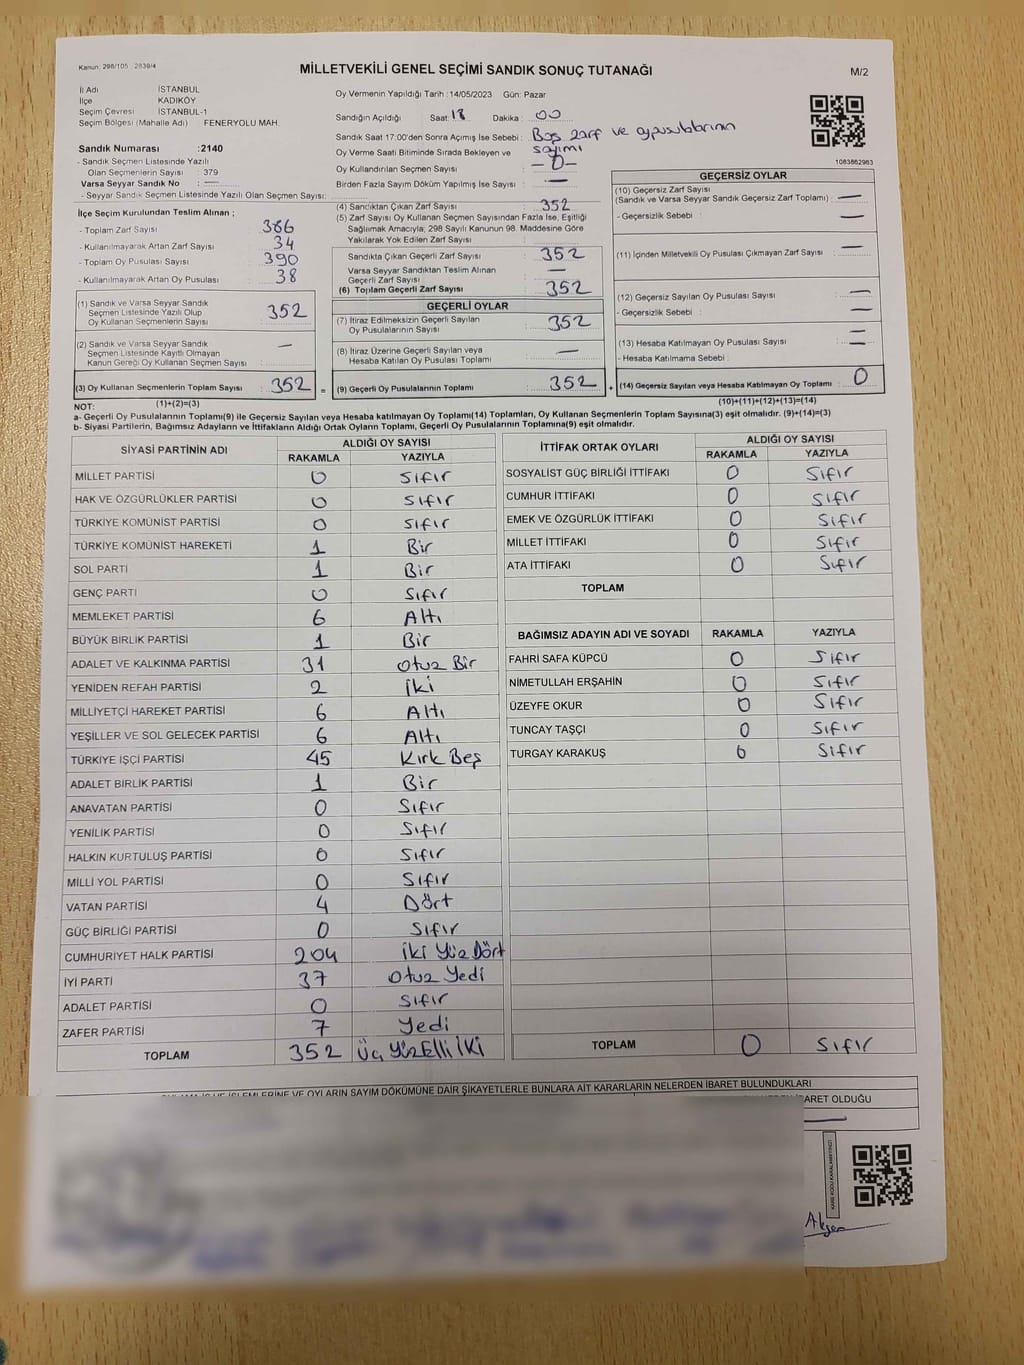 Kanun: 298/105 2839/4
MİLLETVEKİLİ GENEL SEÇİMİ SANDIK SONUÇ TUTANAĞI
M/2
İl Adı İSTANBUL
İlçe KADIKÖY
Seçim Çevresi İSTANBUL-1
Seçim Bölgesi (Mahalle Adı) FENERYOLU MAH.
Oy Vermenin Yapıldığı Tarih :14/05/2023 Gün: Pazar
Sandığın Açıldığı Saat: 18 Dakika : 00
Sandık Saat 17:00'den Sonra Açımış İse Sebebi : Boş zarf ve oy pusulalarının sayımı
Oy Verme Saati Bitiminde Sırada Bekleyen ve
Oy Kullandırılan Seçmen Sayısı : -0-
Birden Fazla Sayım Döküm Yapılmış İse Sayısı : —
1083862963
Sandık Numarası :2140
- Sandık Seçmen Listesinde Yazılı
Olan Seçmenlerin Sayısı : 379
Varsa Seyyar Sandık No : ---
- Seyyar Sandık Seçmen Listesinde Yazılı Olan Seçmen Sayısı:
İlçe Seçim Kurulundan Teslim Alınan ;
- Toplam Zarf Sayısı : 386
- Kullanılmayarak Artan Zarf Sayısı : 34
- Toplam Oy Pusulası Sayısı : 390
- Kullanılmayarak Artan Oy Pusulası : 38
(1) Sandık ve Varsa Seyyar Sandık
Seçmen Listesinde Yazılı Olup
Oy Kullanan Seçmenlerin Sayısı : 352
(2) Sandık ve Varsa Seyyar Sandık
Seçmen Listesinde Kayıtlı Olmayan
Kanun Gereği Oy Kullanan Seçmen Sayısı : —
(3) Oy Kullanan Seçmenlerin Toplam Sayısı : 352 =
(1)+(2)=(3)
(4) Sandıktan Çıkan Zarf Sayısı : 352
(5) Zarf Sayısı Oy Kullanan Seçmen Sayısından Fazla İse, Eşitliği
Sağlamak Amacıyla; 298 Sayılı Kanunun 98. Maddesine Göre
Yakılarak Yok Edilen Zarf Sayısı :
Sandıkta Çıkan Geçerli Zarf Sayısı : 352
Varsa Seyyar Sandıktan Teslim Alınan
Geçerli Zarf Sayısı : —
(6) Toplam Geçerli Zarf Sayısı : 352
GEÇERLİ OYLAR
(7) İtiraz Edilmeksizin Geçerli Sayılan
Oy Pusulalarının Sayısı : 352
(8) İtiraz Üzerine Geçerli Sayılan veya
Hesaba Katılan Oy Pusulası Toplamı : —
(9) Geçerli Oy Pusulalarının Toplamı : 352 +
GEÇERSİZ OYLAR
(10) Geçersiz Zarf Sayısı
(Sandık ve Varsa Seyyar Sandık Geçersiz Zarf Toplamı) : —
- Geçersizlik Sebebi : —
(11) İçinden Milletvekili Oy Pusulası Çıkmayan Zarf Sayısı : —
(12) Geçersiz Sayılan Oy Pusulası Sayısı : —
- Geçersizlik Sebebi : —
(13) Hesaba Katılmayan Oy Pusulası Sayısı : —
- Hesaba Katılmama Sebebi : —
(14) Geçersiz Sayılan veya Hesaba Katılmayan Oy Toplamı : 0
(10)+(11)+(12)+(13)=(14)
NOT:
a- Geçerli Oy Pusulalarının Toplamı(9) ile Geçersiz Sayılan veya Hesaba katılmayan Oy Toplamı(14) Toplamları, Oy Kullanan Seçmenlerin Toplam Sayısına(3) eşit olmalıdır. (9)+(14)=(3)
b- Siyasi Partilerin, Bağımsız Adayların ve İttifakların Aldığı Ortak Oyların Toplamı, Geçerli Oy Pusulalarının Toplamına(9) eşit olmalıdır.
SİYASİ PARTİNİN ADI ALDIĞI OY SAYISI
RAKAMLA YAZIYLA
MİLLET PARTİSİ 0 Sıfır
HAK VE ÖZGÜRLÜKLER PARTİSİ 0 Sıfır
TÜRKİYE KOMÜNİST PARTİSİ 0 Sıfır
TÜRKİYE KOMÜNİST HAREKETİ 1 Bir
SOL PARTİ 1 Bir
GENÇ PARTİ 0 Sıfır
MEMLEKET PARTİSİ 6 Altı
BÜYÜK BİRLİK PARTİSİ 1 Bir
ADALET VE KALKINMA PARTİSİ 31 Otuz Bir
YENİDEN REFAH PARTİSİ 2 İki
MİLLİYETÇİ HAREKET PARTİSİ 6 Altı
YEŞİLLER VE SOL GELECEK PARTİSİ 6 Altı
TÜRKİYE İŞÇİ PARTİSİ 45 Kırk Beş
ADALET BİRLİK PARTİSİ 1 Bir
ANAVATAN PARTİSİ 0 Sıfır
YENİLİK PARTİSİ 0 Sıfır
HALKIN KURTULUŞ PARTİSİ 0 Sıfır
MİLLİ YOL PARTİSİ 0 Sıfır
VATAN PARTİSİ 4 Dört
GÜÇ BİRLİĞİ PARTİSİ 0 Sıfır
CUMHURİYET HALK PARTİSİ 204 İki Yüz Dört
İYİ PARTİ 37 Otuz Yedi
ADALET PARTİSİ 0 Sıfır
ZAFER PARTİSİ 7 Yedi
TOPLAM 352 Üç Yüz Elli İki
İTTİFAK ORTAK OYLARI ALDIĞI OY SAYISI
RAKAMLA YAZIYLA
SOSYALİST GÜÇ BİRLİĞİ İTTİFAKI 0 Sıfır
CUMHUR İTTİFAKI 0 Sıfır
EMEK VE ÖZGÜRLÜK İTTİFAKI 0 Sıfır
MİLLET İTTİFAKI 0 Sıfır
ATA İTTİFAKI 0 Sıfır
TOPLAM
BAĞIMSIZ ADAYIN ADI VE SOYADI RAKAMLA YAZIYLA
FAHRİ SAFA KÜPCÜ 0 Sıfır
NİMETULLAH ERŞAHİN 0 Sıfır
ÜZEYFE OKUR 0 Sıfır
TUNCAY TAŞÇI 0 Sıfır
TURGAY KARAKUŞ 0 Sıfır
TOPLAM 0 Sıfır
İŞLEMLERİNE VE OYLARIN SAYIM DÖKÜMÜNE DAİR ŞİKAYETLERLE BUNLARA AİT KARARLARIN NELERDEN İBARET BULUNDUKLARI
İBARET OLDUĞU
KARE KODU KARALAMAYINIZ!